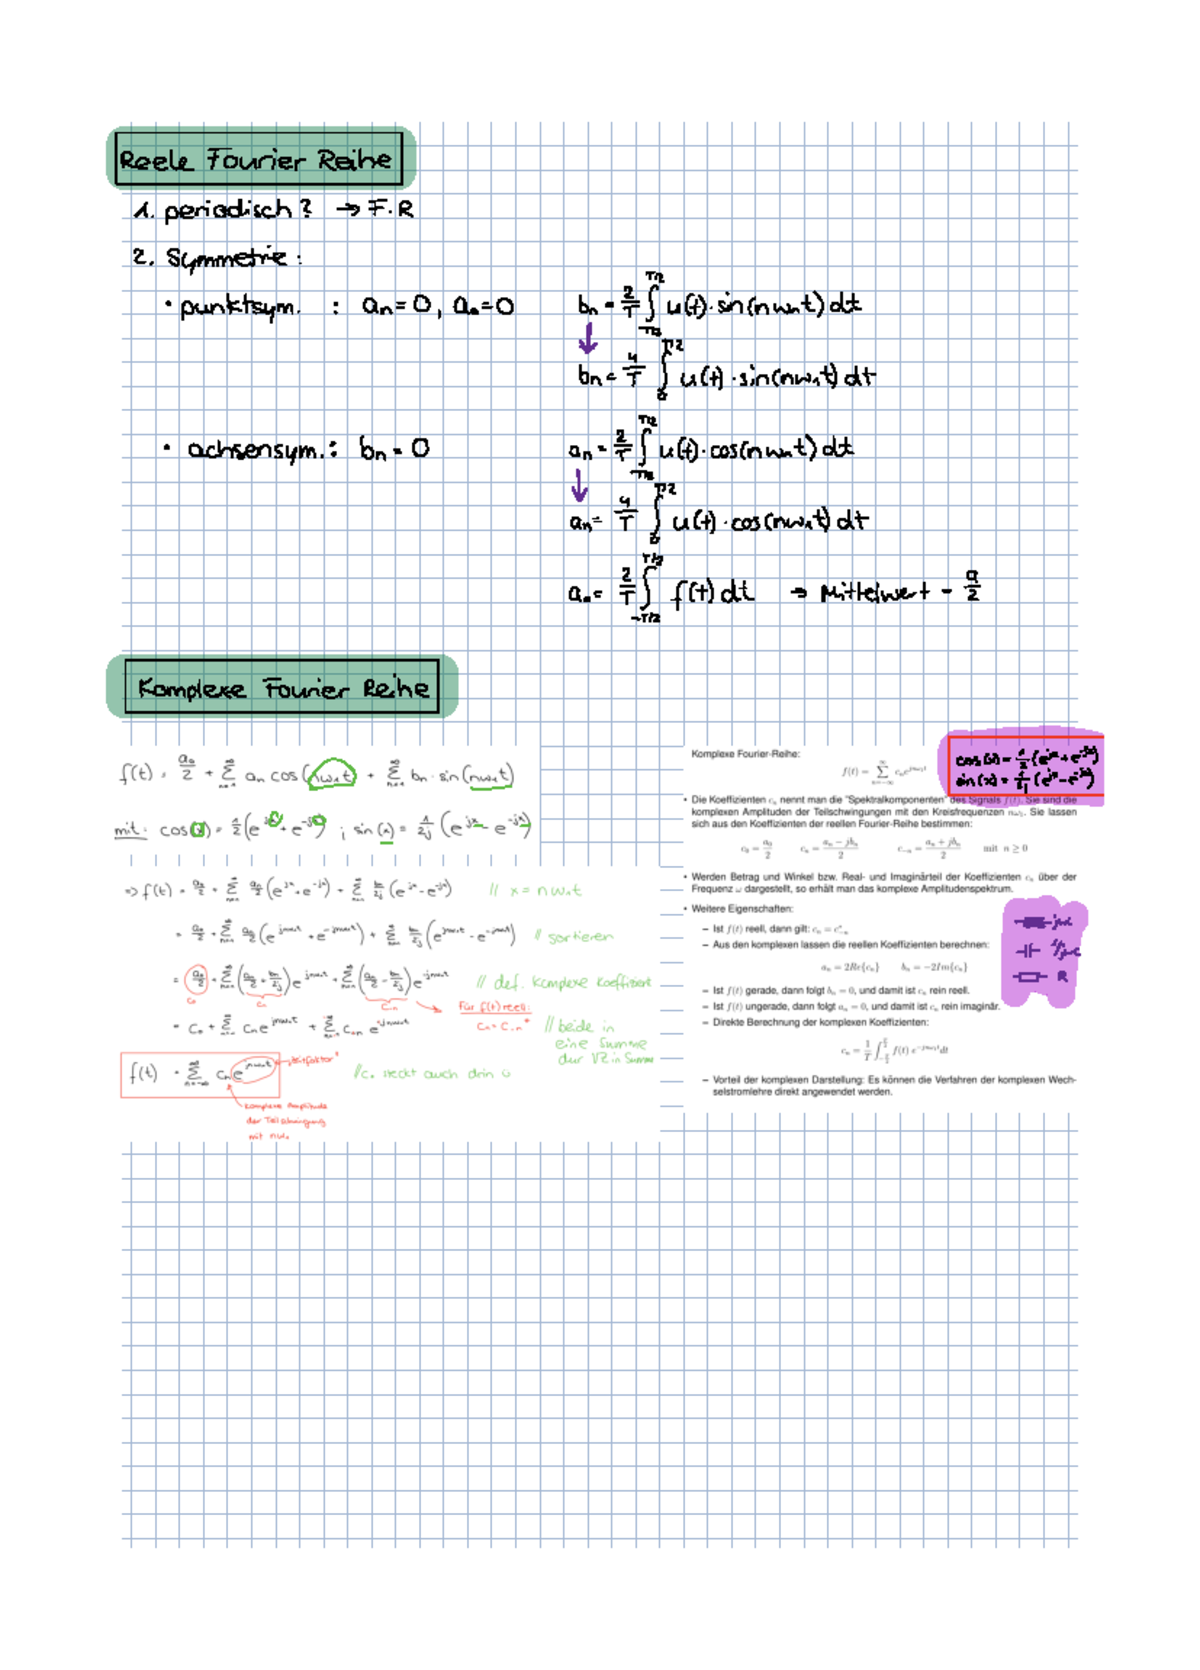 Reele Fourier Reihe
1. periodisch? → F.R
2. Symmetrie:
• punktsym. : aₙ=0, a₀=0
bₙ = 2/T ∫_{-T/2}^{T/2} u(t)·sin(nω₁t) dt
↓
bₙ = 4/T ∫_0^{T/2} u(t)·sin(nω₁t) dt
• achsensym.: bₙ = 0
aₙ = 2/T ∫_{-T/2}^{T/2} u(t)·cos(nω₁t) dt
↓
aₙ = 4/T ∫_0^{T/2} u(t)·cos(nω₁t) dt
a₀ = 2/T ∫_{-T/2}^{T/2} f(t) dt → Mittelwert = a/2
Komplexe Fourier Reihe
f(t) = a₀/2 + Σ_{n=1}^∞ aₙ cos(nω₁t) + Σ_{n=1}^∞ bₙ · sin(nω₁t)
mit: cos(x) = 1/2 (e^{jx} + e^{-jx}) ; sin(x) = 1/2j (e^{jx} - e^{-jx})
⇒ f(t) = a₀/2 + Σ_{n=1}^∞ aₙ/2 (e^{jx} + e^{-jx}) + Σ_{n=1}^∞ bₙ/2j (e^{jx} - e^{-jx}) // x = nω₁t
= a₀/2 + Σ_{n=1}^∞ aₙ/2 (e^{jnω₁t} + e^{-jnω₁t}) + Σ_{n=1}^∞ bₙ/2j (e^{jnω₁t} - e^{-jnω₁t}) // sortieren
= a₀/2 + Σ_{n=1}^∞ (aₙ/2 + bₙ/2j) e^{jnω₁t} + Σ_{n=1}^∞ (aₙ/2 - bₙ/2j) e^{-jnω₁t} // def. Komplexe Koeffizient
c₀ cₙ c₋ₙ
Für f(t) reell:
cₙ = c₋ₙ*
= c₀ + Σ_{n=1}^∞ cₙ e^{jnω₁t} + Σ_{n=1}^∞ c₋ₙ e^{-jnω₁t} // beide in
eine Summe
dur VZ in Summe
f(t) = Σ_{n=-∞}^∞ cₙ e^{jnω₁t} "Zeitfaktor" // c₀ steckt auch drin
Komplexe Amplitude
der Teilschwingung
mit nω₁
Komplexe Fourier-Reihe:
f(t) = Σ_{n=-∞}^∞ cₙe^{jnω₁t}
cos(x) = 1/2 (e^{jx} + e^{-jx})
sin(x) = 1/2j (e^{jx} - e^{-jx})
• Die Koeffizienten cₙ nennt man die "Spektralkomponenten" des Signals f(t). Sie sind die
komplexen Amplituden der Teilschwingungen mit den Kreisfrequenzen nω₁. Sie lassen
sich aus den Koeffizienten der reellen Fourier-Reihe bestimmen:
c₀ = a₀/2 cₙ = (aₙ − jbₙ)/2 c₋ₙ = (aₙ + jbₙ)/2 mit n ≥ 0
• Werden Betrag und Winkel bzw. Real- und Imaginärteil der Koeffizienten cₙ über der
Frequenz ω dargestellt, so erhält man das komplexe Amplitudenspektrum.
• Weitere Eigenschaften:
– Ist f(t) reell, dann gilt: cₙ = c*₋ₙ
– Aus den komplexen lassen die reellen Koeffizienten berechnen:
aₙ = 2Re{cₙ} bₙ = −2Im{cₙ}
– Ist f(t) gerade, dann folgt bₙ = 0, und damit ist cₙ rein reell.
– Ist f(t) ungerade, dann folgt aₙ = 0, und damit ist cₙ rein imaginär.
– Direkte Berechnung der komplexen Koeffizienten:
cₙ = 1/T ∫_{-T/2}^{T/2} f(t) e^{−jnω₁t}dt
– Vorteil der komplexen Darstellung: Es können die Verfahren der komplexen Wech-
selstromlehre direkt angewendet werden.
jωL
1/jωC
R